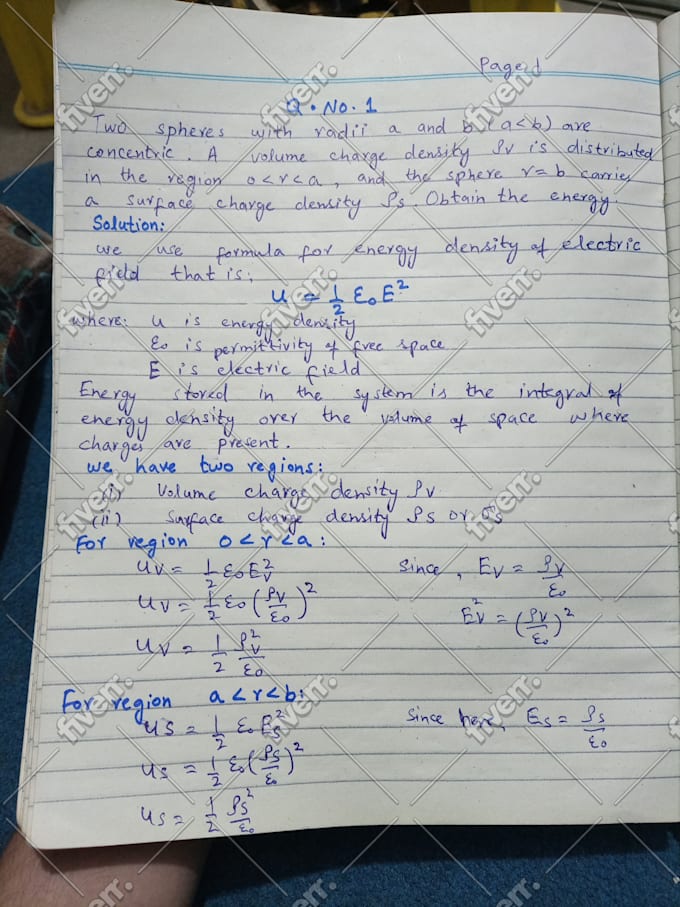 Page 1
Q. No. 1
Two spheres with radii a and b (a<b) are
concentric. A volume charge density ρv is distributed
in the region o<r<a, and the sphere r=b carries
a surface charge density ρs. Obtain the energy.
Solution:
we use formula for energy density of electric
field that is;
u = 1/2 ε₀E²
where: u is energy density
ε₀ is permittivity of free space
E is electric field
Energy stored in the system is the integral of
energy density over the volume of space where
charges are present.
we have two regions:
(i) Volume charge density ρv
(ii) Surface charge density ρs or σs
For region o<r<a:
uv = 1/2 ε₀Ev² Since, Ev = ρv/ε₀
uv = 1/2 ε₀(ρv/ε₀)² Ev² = (ρv/ε₀)²
uv = 1/2 ρv²/ε₀
For region a<r<b:
us = 1/2 ε₀Es² Since here, Es = ρs/ε₀
us = 1/2 ε₀(ρs/ε₀)²
us = 1/2 ρs²/ε₀
fiverr.